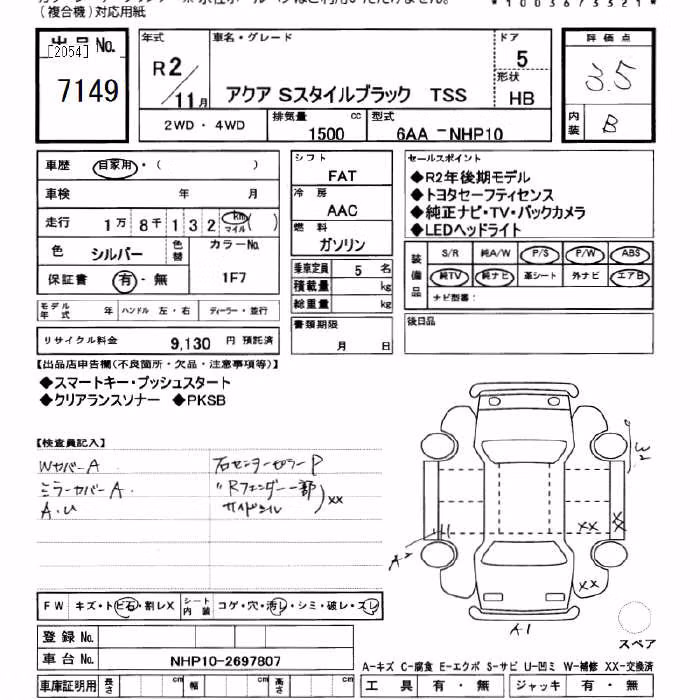 (複合機)対応用紙
*1003673321*
出品 No.
[2054]
7149
年式
R2/11月
車名・グレード
アクア Sスタイルブラック TSS
ドア
5
形状
HB
評価点
3.5
内装
B
2WD・4WD
排気量 1500 cc
型式 6AA-NHP10
車歴 自家用・( )
車検 年 月
走行 1万8千132 km マイル ( )
色 シルバー
色替
カラーNo. 1F7
保証書 有・無
モデル年式 年 ハンドル 左・右 ディーラー・並行
リサイクル料金 9,130 円 預託済
シフト
FAT
冷房
AAC
燃料
ガソリン
乗車定員 5 名
積載量 kg
総重量 kg
書類期限
月 日
セールスポイント
◆R2年後期モデル
◆トヨタセーフティセンス
◆純正ナビ・TV・バックカメラ
◆LEDヘッドライト
装備品
S/R 純A/W P/S P/W ABS
純TV 純ナビ 革シート 外ナビ エアB
ナビ型番:
後日品
【出品店申告欄(不良箇所・欠品・注意事項等)】
◆スマートキー・プッシュスタート
◆クリアランスソナー ◆PKSB
【検査員記入】
Wカバー A
ミラーカバー A.
A.U
右センターピラー P
〃 Rフェンダー一部
サイドシル
XX
W2
XX
XX
XX
A2
A1
スペア
FW キズ・ト石・割レX
シート内装 コゲ・穴・汚レ・シミ・破レ・スレ
登録 No.
車台 No. NHP10-2697807
車庫証明用 長さ cm 幅 cm 高さ cm
A-キズ C-腐食 E-エクボ S-サビ U-凹ミ W-補修 XX-交換済
工具 有・無 ジャッキ 有・無